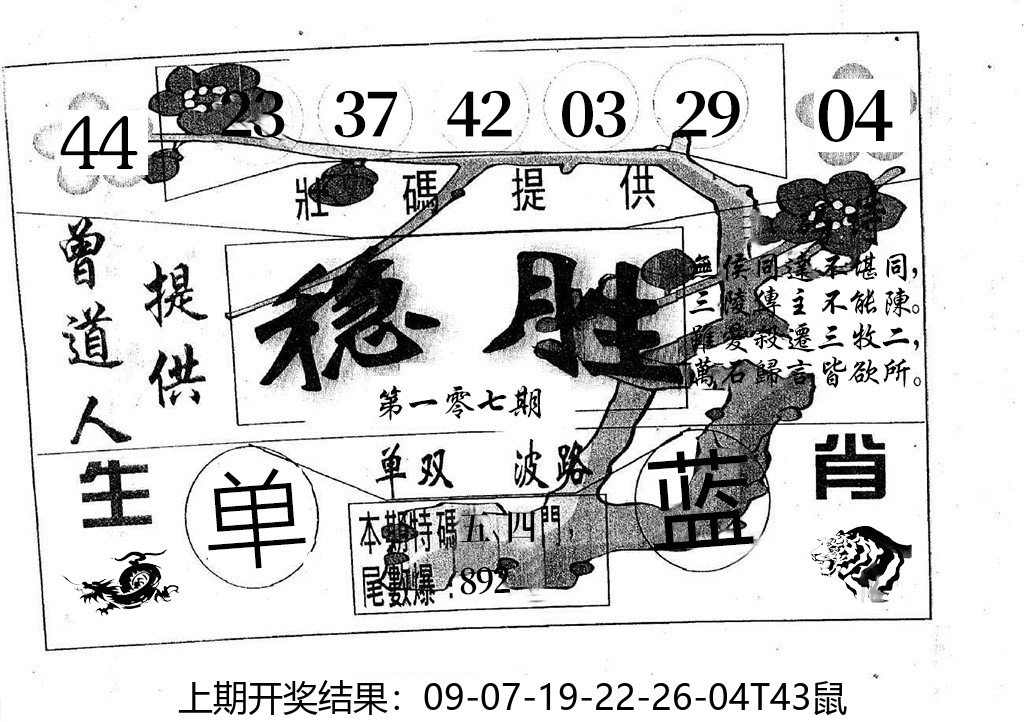 44 23 37 42 03 29 04
壯碼提供
特
曾道人
提供
稳胜
無侯同達不堪同，
三陵傳主不能陳。
難愛殺遷三牧二，
萬石歸言皆欲所。
第一零七期
单双 波路
生 单 蓝 肖
本期特碼五、四門，
尾數爆：892
上期开奖结果：09-07-19-22-26-04T43鼠